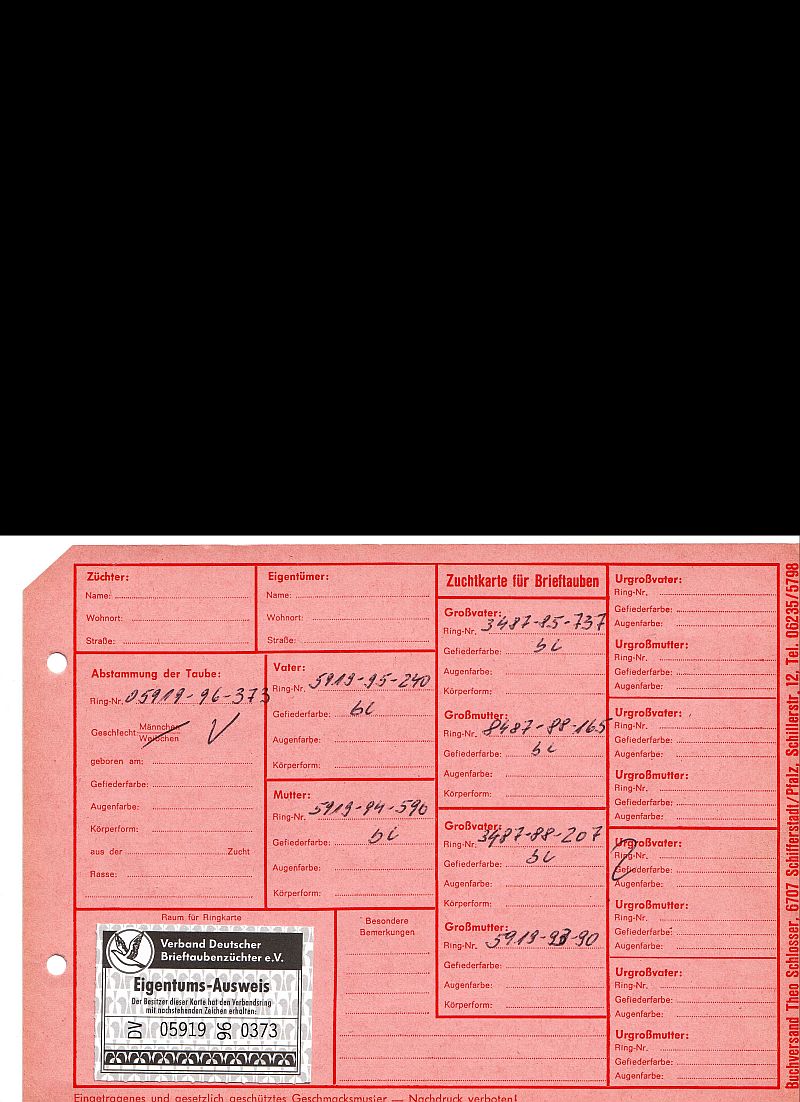 Züchter:
Name:
Wohnort:
Straße:
Eigentümer:
Name:
Wohnort:
Straße:
Abstammung der Taube:
Ring-Nr. 05919-96-373
Geschlecht: Männchen
Weibchen
geboren am:
Gefiederfarbe:
Augenfarbe:
Körperform:
aus der Zucht
Rasse:
Vater:
Ring-Nr. 5919-95-240
Gefiederfarbe: bl
Augenfarbe:
Körperform:
Mutter:
Ring-Nr. 5919-94-590
Gefiederfarbe: bl
Augenfarbe:
Körperform:
Zuchtkarte für Brieftauben
Großvater:
Ring-Nr. 3487-85-737
Gefiederfarbe: bl
Augenfarbe:
Körperform:
Großmutter:
Ring-Nr. 8487-88-165
Gefiederfarbe: bl
Augenfarbe:
Körperform:
Großvater:
Ring-Nr. 3487-88-207
Gefiederfarbe: bl
Augenfarbe:
Körperform:
Großmutter:
Ring-Nr. 5919-93-90
Gefiederfarbe:
Augenfarbe:
Körperform:
Urgroßvater:
Ring-Nr.
Gefiederfarbe:
Augenfarbe:
Urgroßmutter:
Ring-Nr.
Gefiederfarbe:
Augenfarbe:
Urgroßvater:
Ring-Nr.
Gefiederfarbe:
Augenfarbe:
Urgroßmutter:
Ring-Nr.
Gefiederfarbe:
Augenfarbe:
Urgroßvater:
Ring-Nr.
Gefiederfarbe:
Augenfarbe:
Urgroßmutter:
Ring-Nr.
Gefiederfarbe:
Augenfarbe:
Urgroßvater:
Ring-Nr.
Gefiederfarbe:
Augenfarbe:
Urgroßmutter:
Ring-Nr.
Gefiederfarbe:
Augenfarbe:
Raum für Ringkarte
Verband Deutscher
Brieftaubenzüchter e.V.
Eigentums-Ausweis
Der Besitzer dieser Karte hat den Verbandsring
mit nachstehenden Zeichen erhalten:
DV 05919 96 0373
Besondere
Bemerkungen
Buchversand Theo Schlosser, 6707 Schifferstadt/Pfalz, Schillerstr. 12, Tel. 06235/5798
Eingetragenes und gesetzlich geschütztes Geschmacksmuster — Nachdruck verboten!